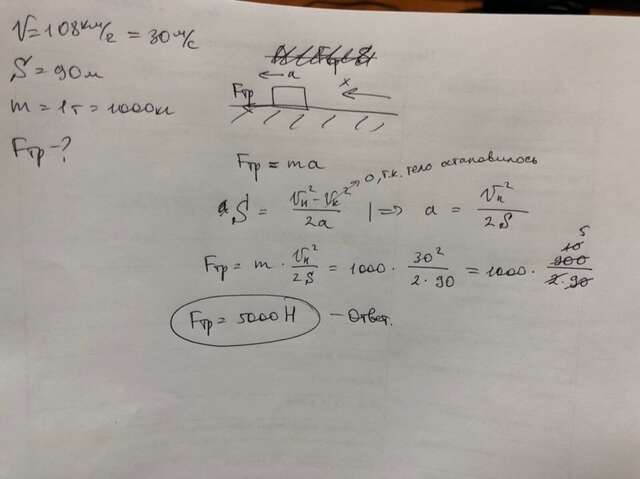 V = 108 км/г = 30 м/с
S = 90м
m = 1т = 1000кг
Fтр - ?
a
Fтр
x
Fтр = ma
S = (Vн² - Vк²)/2a |=> a = Vн²/2S
0, т.к. тело остановилось
Fтр = m · Vн²/2S = 1000 · 30²/2·90 = 1000 · 900/2·90
10
5
Fтр = 5000 Н - Ответ.